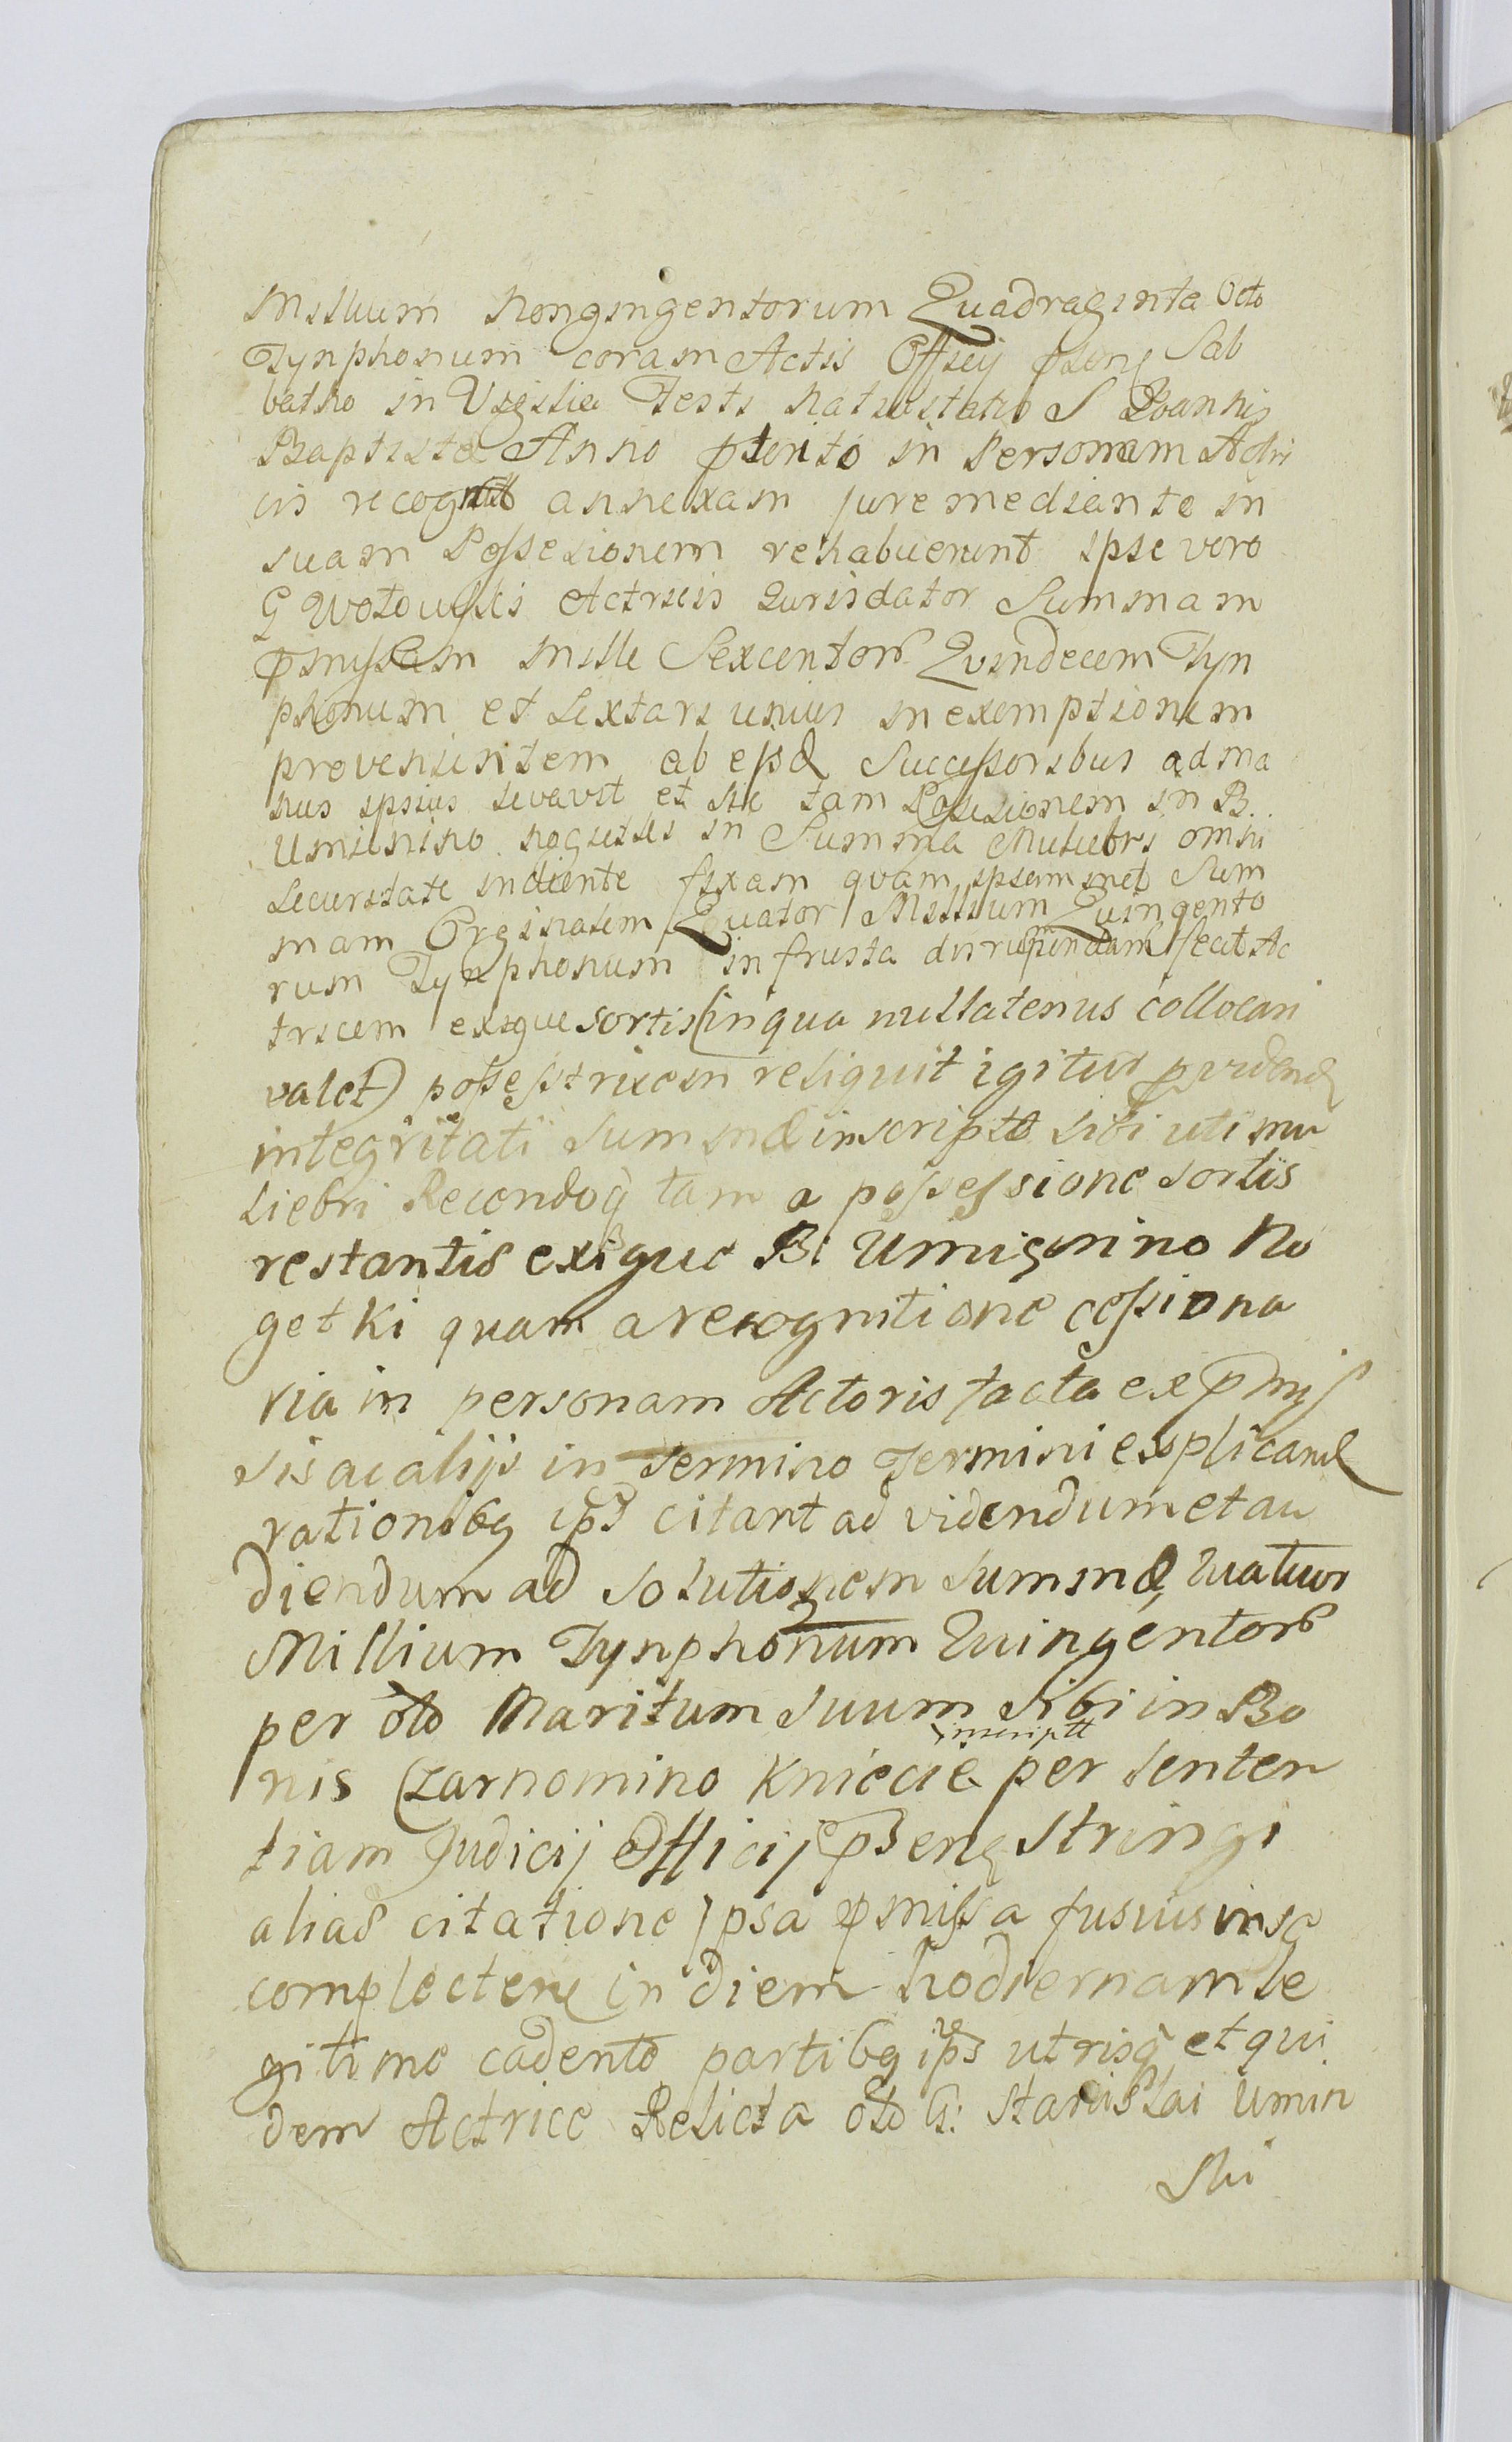 Millium Nongingentorum Quadraginta Octo
Tynphonum coram Actis Officij pseng Sab
batho in Vigilia Festi Nativitatis S Ioannis
Baptistæ Anno pterito in Personam Actri
cis recognit annexam jure mediante in
suam Possesionem rehabuerunt ipse vero
G Wotowski Actricis Iurisdator Summam
pmissam mille Sexcentor Quindecem Tyn
phonum et Sextari unius in exemptionem
provenientem ab eisd Successoribus ad ma
nus ipsius levavit et sic tam Possesionem in B.
Uminino Nogietki in Summa Muliebri omni
Securitate indiente fixam quam ipsammet Sum
mam Orginalem Quatuor Millium Quingento
rum Tynphonum in frusta disrupendam fecit Ac
tricem exigue sortis (in qua nullatenus collocari
valet) possestricem reliquit igitur pvidend
integritati summæ inscriptæ sibi uti mu
liebri Recendoq tam a possessione sortis
restantis exigue B: Uminino No
getki quam a recognitione cessiona
ria in personam Actoris facta ex pmis
sis ac alijs in Termino Termini explicand
rationibq ips citant ad videndum et au
diendum ad solutionem summæ Quatuor
Millium Tynphonum Quingentor
per olo Maritum suum sibi in Bo
nis Czarnomino Kniecie inscriptt per senten
tiam Judicij Officij pseng stringi
alias citatione ipsa pmissa fusius in se
complecten in diem hodiernam le
gitime cadente partibq ips utrisq et qui
dem Actrice Relicta olo G: Stanislai Umin
ski